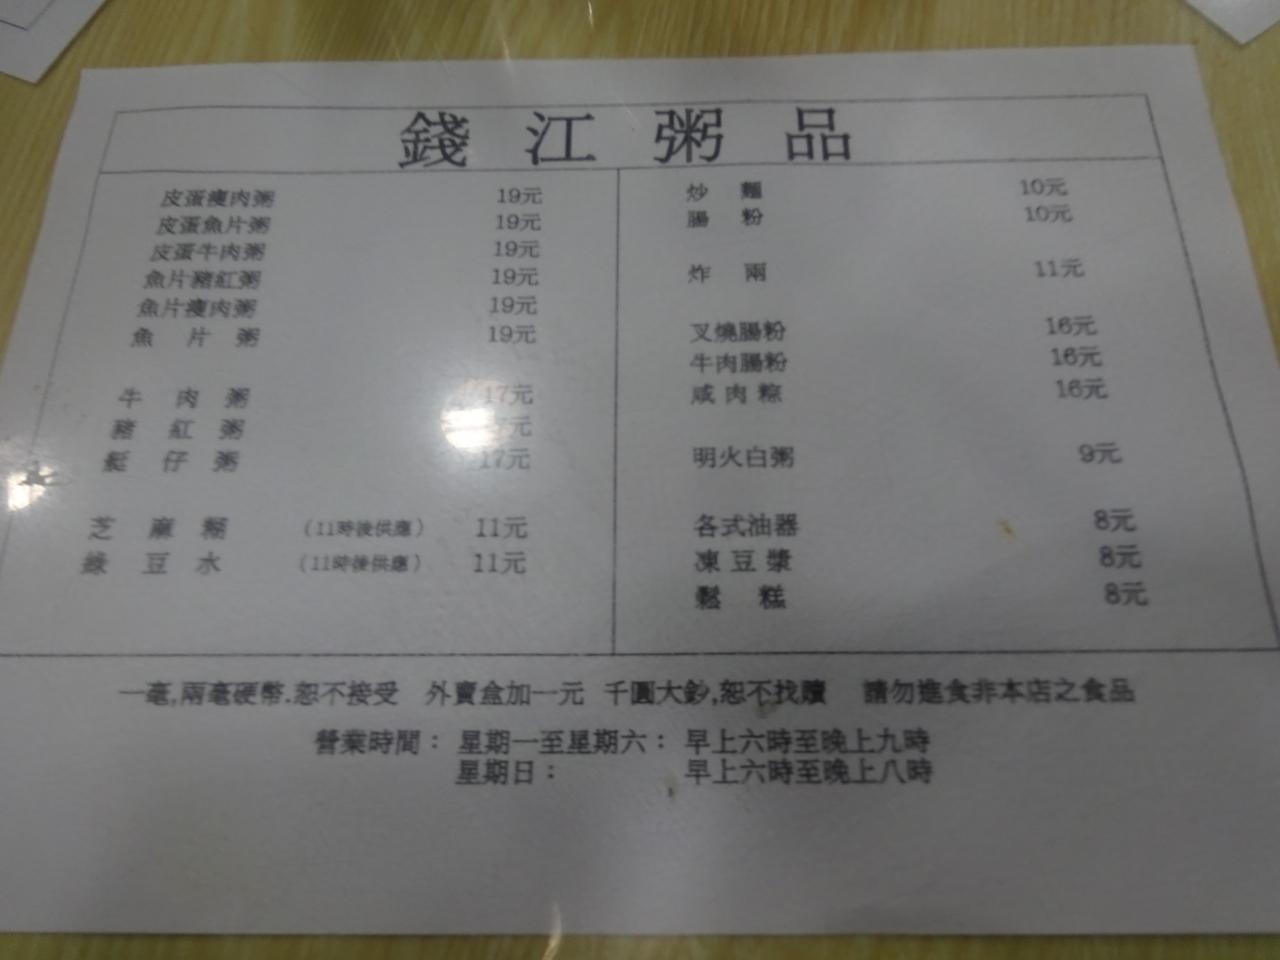 錢江粥品
皮蛋瘦肉粥 19元
皮蛋魚片粥 19元
皮蛋牛肉粥 19元
魚片豬紅粥 19元
魚片瘦肉粥 19元
魚片粥 19元
牛肉粥 17元
豬紅粥 7元
艇仔粥 17元
芝麻糊 (11時後供應) 11元
綠豆水 (11時後供應) 11元
炒麵 10元
腸粉 10元
炸兩 11元
叉燒腸粉 16元
牛肉腸粉 16元
咸肉粽 16元
明火白粥 9元
各式油器 8元
凍豆漿 8元
鬆糕 8元
一毫,兩毫硬幣.恕不接受 外賣盒加一元 千圓大鈔,恕不找贖 請勿進食非本店之食品
營業時間： 星期一至星期六： 早上六時至晚上九時
星期日： 早上六時至晚上八時